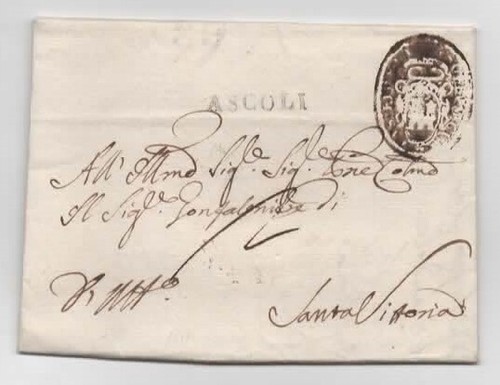 ASCOLI
All' Illmo Sig.e Sig.e Pne Colmo
Il Sig.e Gonfaloniere di
Santa Vittoria